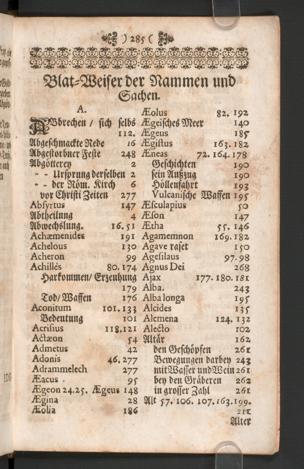 ) 285 (
Blat-Weiser der Nammen und
Sachen.
A.
ABbrechen / sich selbs
112.
Abgeschmackte Rede 16
Abgestorbner Feste 248
Abgötterey 2
- - Ursprung derselben 2
- - der Röm. Kirch 6
vor Christi Zeiten 277
Absyrtus 147
Abtheilung 4
Abwechslung. 16. 51
Achæmenides 191
Achelous 130
Acheron 99
Achilles 80. 174
Harkommen / Erziehung
179
Tod / Waffen 176
Aconitum 101. 133
Bedeutung 101
Acrisius 118. 121
Actæon 54
Admetus 42
Adonis 46. 277
Adrammelech 277
Æacus 95
Ægeon 24. 25. Ægeus 148
Ægina 28
Æolia 186
Æolus 82. 192
Ægeisches Meer 140
Ægeus 185
Ægistus 163. 182
Æneas 72. 164. 178
Geschichten 190
sein Außzug 190
Höllenfahrt 193
Vulcanische Waffen 195
Æsculapius 50
Æson 147
Ætha 55. 146
Agamemnon 169. 182
Agave raset 150
Agesilaus 97. 98
Agnus Dei 268
Ajax 177. 180. 181
Alba. 243
Alba longa 195
Alcides 135
Alcmena 124. 132
Alecto 102
Altär 162
den Geschöpfen 261
Bewegungen darbey 243
mit Wasser und Wein 261
bey den Gräberen 262
in grosser Zahl 261
Alt 57. 106. 107. 163. 199.
211
Alter